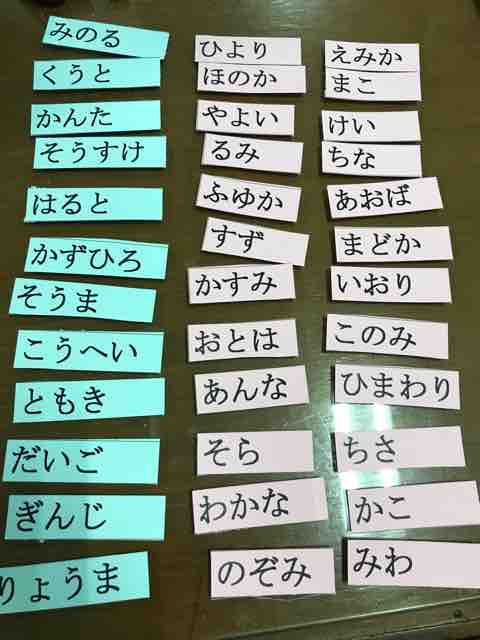 みのる
くうと
かんた
そうすけ
はると
かずひろ
そうま
こうへい
ともき
だいご
ぎんじ
りょうま
ひより
ほのか
やよい
るみ
ふゆか
すず
かすみ
おとは
あんな
そら
わかな
のぞみ
えみか
まこ
けい
ちな
あおば
まどか
いおり
このみ
ひまわり
ちさ
かこ
みわ